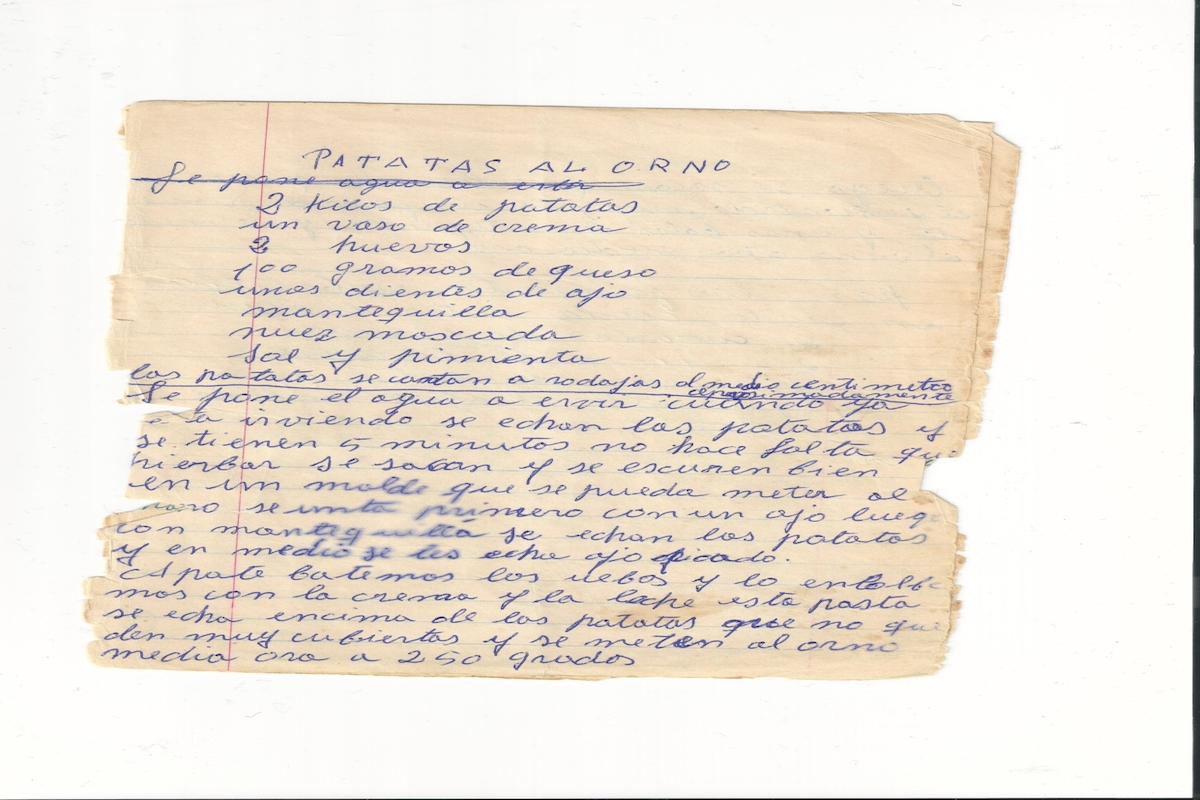 PATATAS AL ORNO
Se pone agua a
2 Kilos de patatas
un vaso de crema
2 huevos
100 gramos de queso
unos dientes de ajo
mantequilla
nuez moscada
Sal y pimienta
las patatas se cortan a rodajas d medio centimetro
aproximadamente
Se pone el agua a ervir cuando ya
irviendo se echan las patatas y
se tienen 5 minutos no hace falta que
hierbar se sacan y se escuren bien
en un molde que se pueda meter al
se unta primero con un ajo lueg
con mantequilla se echan las patatas
y en medio se les echa ajo picado.
Apate batemos los uebos y lo enbolbe
mos con la crema y la leche esta pasta
se echa encima de las patatas que no que
den muy cubiertas y se meten al orno
media ora a 250 grados